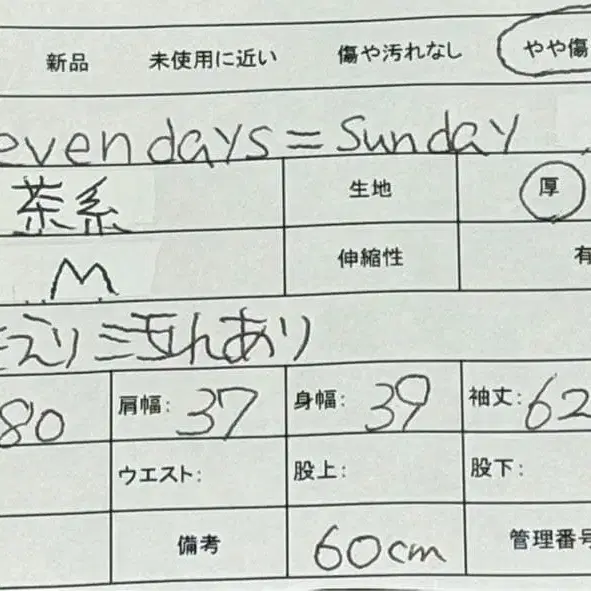 新品 未使用に近い 傷や汚れなし やや傷
evendays=Sunday
茶系 生地 厚
M 伸縮性 有
えり
あり
80 肩幅: 37 身幅: 39 袖丈: 62
ウエスト: 股上: 股下:
備考 60cm 管理番号